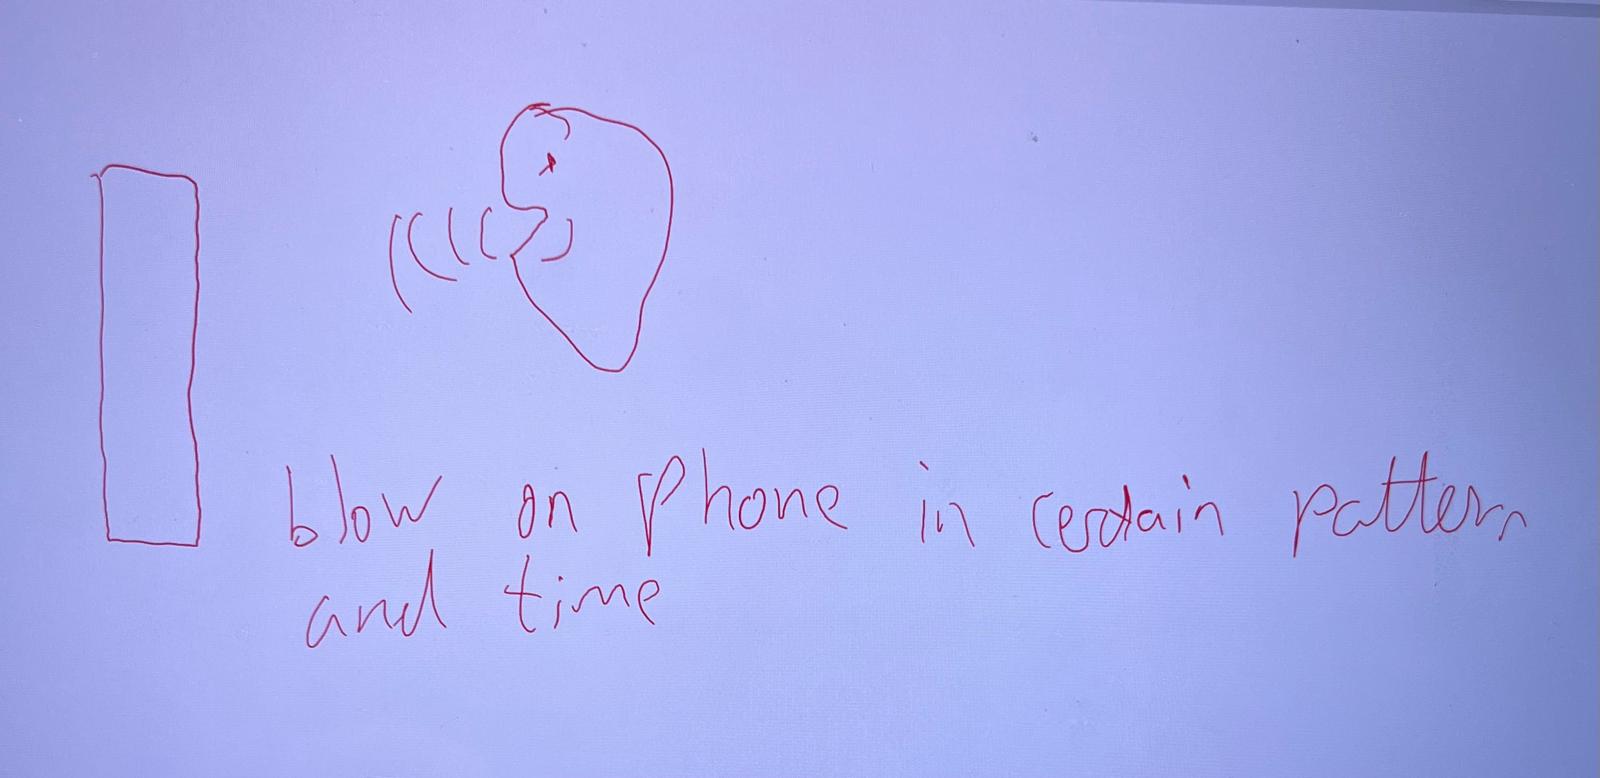 blow on phone in certain pattern
and time